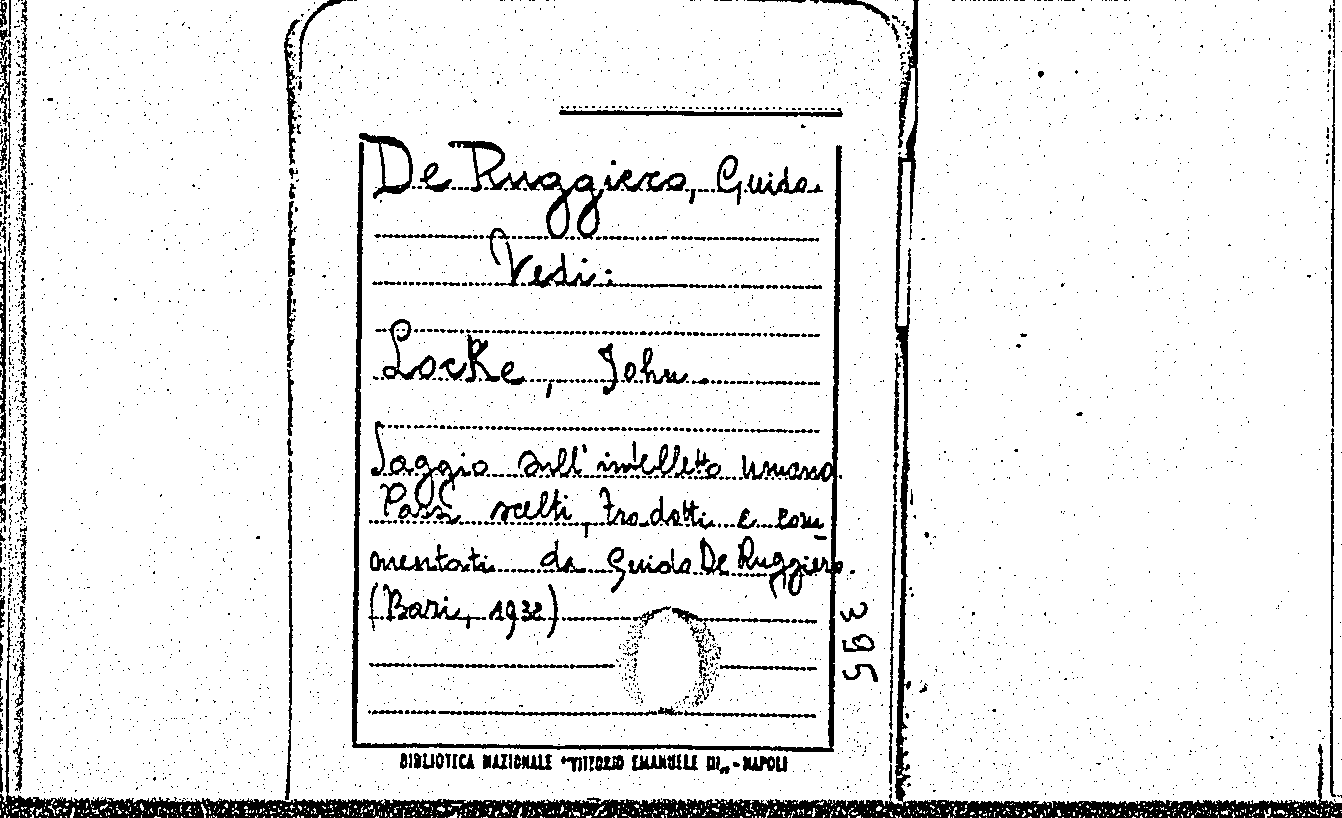 De Ruggiero, Guido.
Vedi:
Locke, John.
Saggio sull'intelletto umano.
Passi scelti, tradotti e com-
mentati da Guido De Ruggiero.
(Bari, 1932)
395
BIBLIOTECA NAZIONALE "VITTORIO EMANUELE III" - NAPOLI